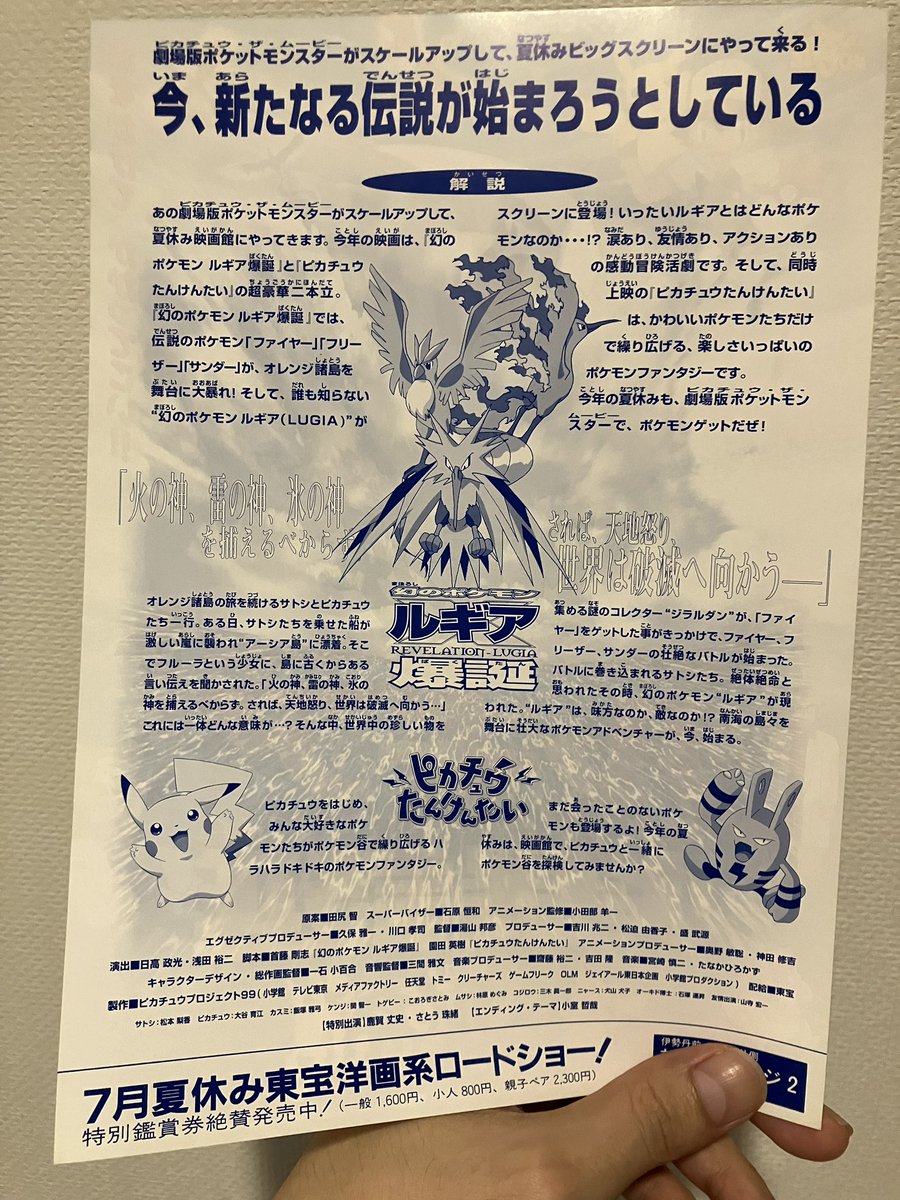 劇場版ポケットモンスターがスケールアップして、夏休みビッグスクリーンにやって来る!
今、新たなる伝説が始まろうとしている
解説
あの劇場版ポケットモンスターがスケールアップして、
夏休み映画館にやってきます。今年の映画は、『幻の
ポケモン ルギア爆誕』と『ピカチュウ
たんけんたい』の超豪華二本立。
『幻のポケモン ルギア爆誕』では、
伝説のポケモン「ファイヤー」「フリー
ザー」「サンダー」が、オレンジ諸島を
舞台に大暴れ! そして、誰も知らない
“幻のポケモン ルギア(LUGIA)”が
スクリーンに登場! いったいルギアとはどんなポケ
モンなのか・・・!? 涙あり、友情あり、アクションあり
の感動冒険活劇です。そして、同時
上映の『ピカチュウたんけんたい』
は、かわいいポケモンたちだけ
で繰り広げる、楽しさいっぱいの
ポケモンファンタジーです。
今年の夏休みも、劇場版ポケットモン
スターで、ポケモンゲットだぜ!
「火の神、雷の神、氷の神
を捕えるべからず
されば、天地怒り、
世界は破滅へ向かう—」
幻のポケモン
ルギア
REVELATION-LUGIA
爆誕
オレンジ諸島の旅を続けるサトシとピカチュウ
たち一行。ある日、サトシたちを乗せた船が
激しい嵐に襲われ“アーシア島”に漂着。そこ
でフルーラという少女に、島に古くからある
言い伝えを聞かされた。「火の神、雷の神、氷の
神を捕えるべからず。されば、天地怒り、世界は破滅へ向かう…」
これには一体どんな意味が…? そんな中、世界中の珍しい物を
集める謎のコレクター“ジラルダン”が、「ファイ
ヤー」をゲットした事がきっかけで、ファイヤー、フ
リーザー、サンダーの壮絶なバトルが始まった。
バトルに巻き込まれるサトシたち。絶体絶命と
思われたその時、幻のポケモン“ルギア”が現
われた。“ルギア”は、味方なのか、敵なのか!? 南海の島々を
舞台に壮大なポケモンアドベンチャーが、今、始まる。
ピカチュウ
たんけんたい
ピカチュウをはじめ、
みんな大好きなポケ
モンたちがポケモン谷で繰り広げるハ
ラハラドキドキのポケモンファンタジー。
まだ会ったことのないポケ
モンも登場するよ! 今年の夏
休みは、映画館で、ピカチュウと一緒に
ポケモン谷を探検してみませんか?
原案■田尻 智 スーパーバイザー■石原 恒和 アニメーション監修■小田部 羊一
エグゼクティブプロデューサー■久保 雅一・川口 孝司 監督■湯山 邦彦 プロデューサー■吉川 兆二・松迫 由香子・盛 武源
演出■日高 政光・浅田 裕二 脚本■首藤 剛志『幻のポケモン ルギア爆誕』 園田 英樹『ピカチュウたんけんたい』 アニメーションプロデューサー■奥野 敏聡・神田 修吉
キャラクターデザイン・総作画監督■一石 小百合 音響監督■三間 雅文 音楽プロデューサー■斎藤 裕二・吉田 隆 音楽■宮崎 慎二・たなかひろかず
製作■ピカチュウプロジェクト99(小学館 テレビ東京 メディアファクトリー 任天堂 トミー クリーチャーズ ゲームフリーク OLM ジェイアール東日本企画 小学館プロダクション) 配給■東宝
サトシ:松本 梨香 ピカチュウ:大谷 育江 カスミ:飯塚 雅弓 ケンジ:関 智一 トゲピー:こおろぎさとみ ムサシ:林原 めぐみ コジロウ:三木 眞一郎 ニャース:犬山 犬子 オーキド博士:石塚 運昇 友情出演:山寺 宏一
【特別出演】鹿賀 丈史・さとう 珠緒 【エンディング・テーマ】小室 哲哉
7月夏休み東宝洋画系ロードショー!
特別鑑賞券絶賛発売中! (一般 1,600円、小人 800円、親子ペア 2,300円)
伊勢丹前
ジ 2